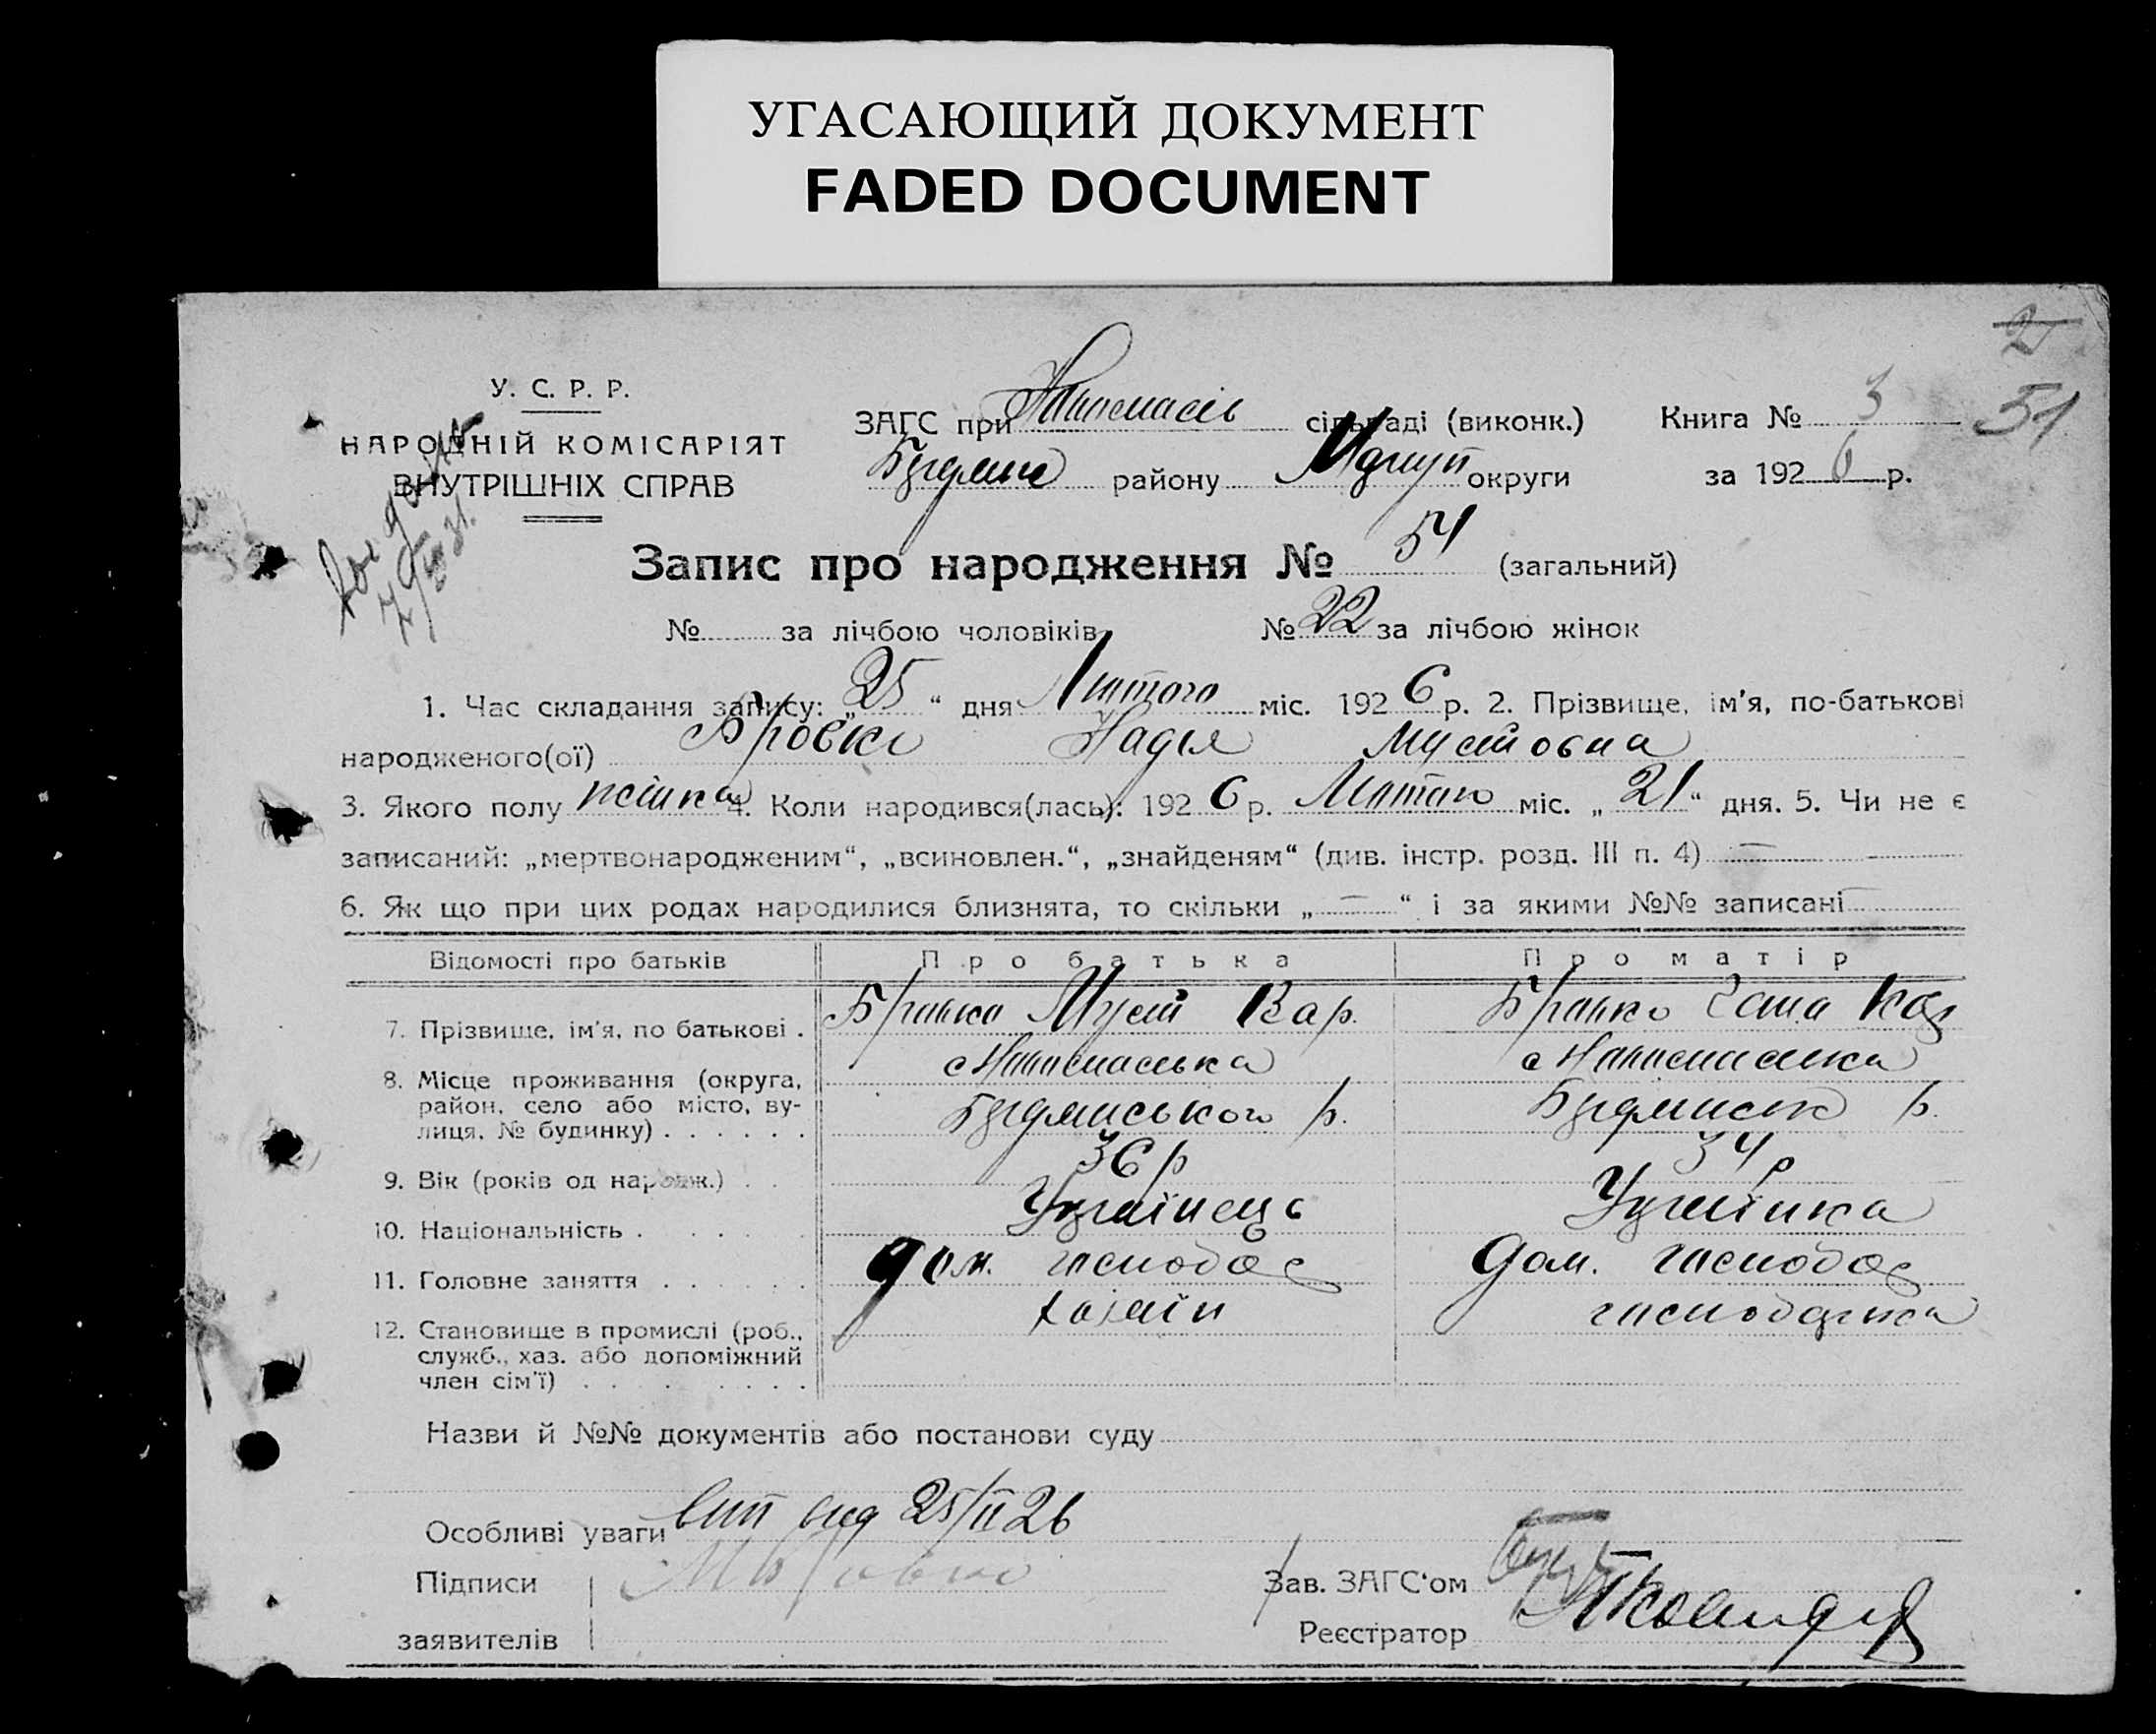 УГАСАЮЩИЙ ДОКУМЕНТ
FADED DOCUMENT
У. С. Р. Р.
НАРОДНІЙ КОМІСАРІЯТ
ВНУТРІШНІХ СПРАВ
ЗАГС при сільраді (виконк.)
району округи
Книга № 3
за 1926 р.
51
Запис про народження № 54 (загальний)
№ за лічбою чоловіків № 22 за лічбою жінок
1. Час складання запису: „25“ дня Лютого міс. 1926 р. 2. Прізвище, ім'я, по-батькові
народженого(ої) Бровко Надія Мусіовна
3. Якого полу жінка 4. Коли народився(лась): 1926 р. Лютого міс. „21“ дня. 5. Чи не є
записаний: „мертвонародженим“, „всиновлен.“, „знайденям“ (див. інстр. розд. III п. 4) —
6. Як що при цих родах народилися близнята, то скільки „—“ і за якими №№ записані —
Відомості про батьків Про батька Про матір
7. Прізвище, ім'я, по батькові . Бровко Мусій Бровко
8. Місце проживання (округа,
район, село або місто, ву-
лиця, № будинку) . . . . . . р. р.
9. Вік (років од нарож.) . . 36 р 34 р
10. Національність . . . . . Українець Українка
11. Головне заняття . . . . . . дом. господар дом. господар
12. Становище в промислі (роб., хазяїн господарка
служб., хаз. або допоміжний
член сім'ї) . . . . . . . .
Назви й №№ документів або постанови суду
Особливі уваги вип від 25/II 26
Підписи М Бровко Зав. ЗАГС'ом
заявителів Реєстратор